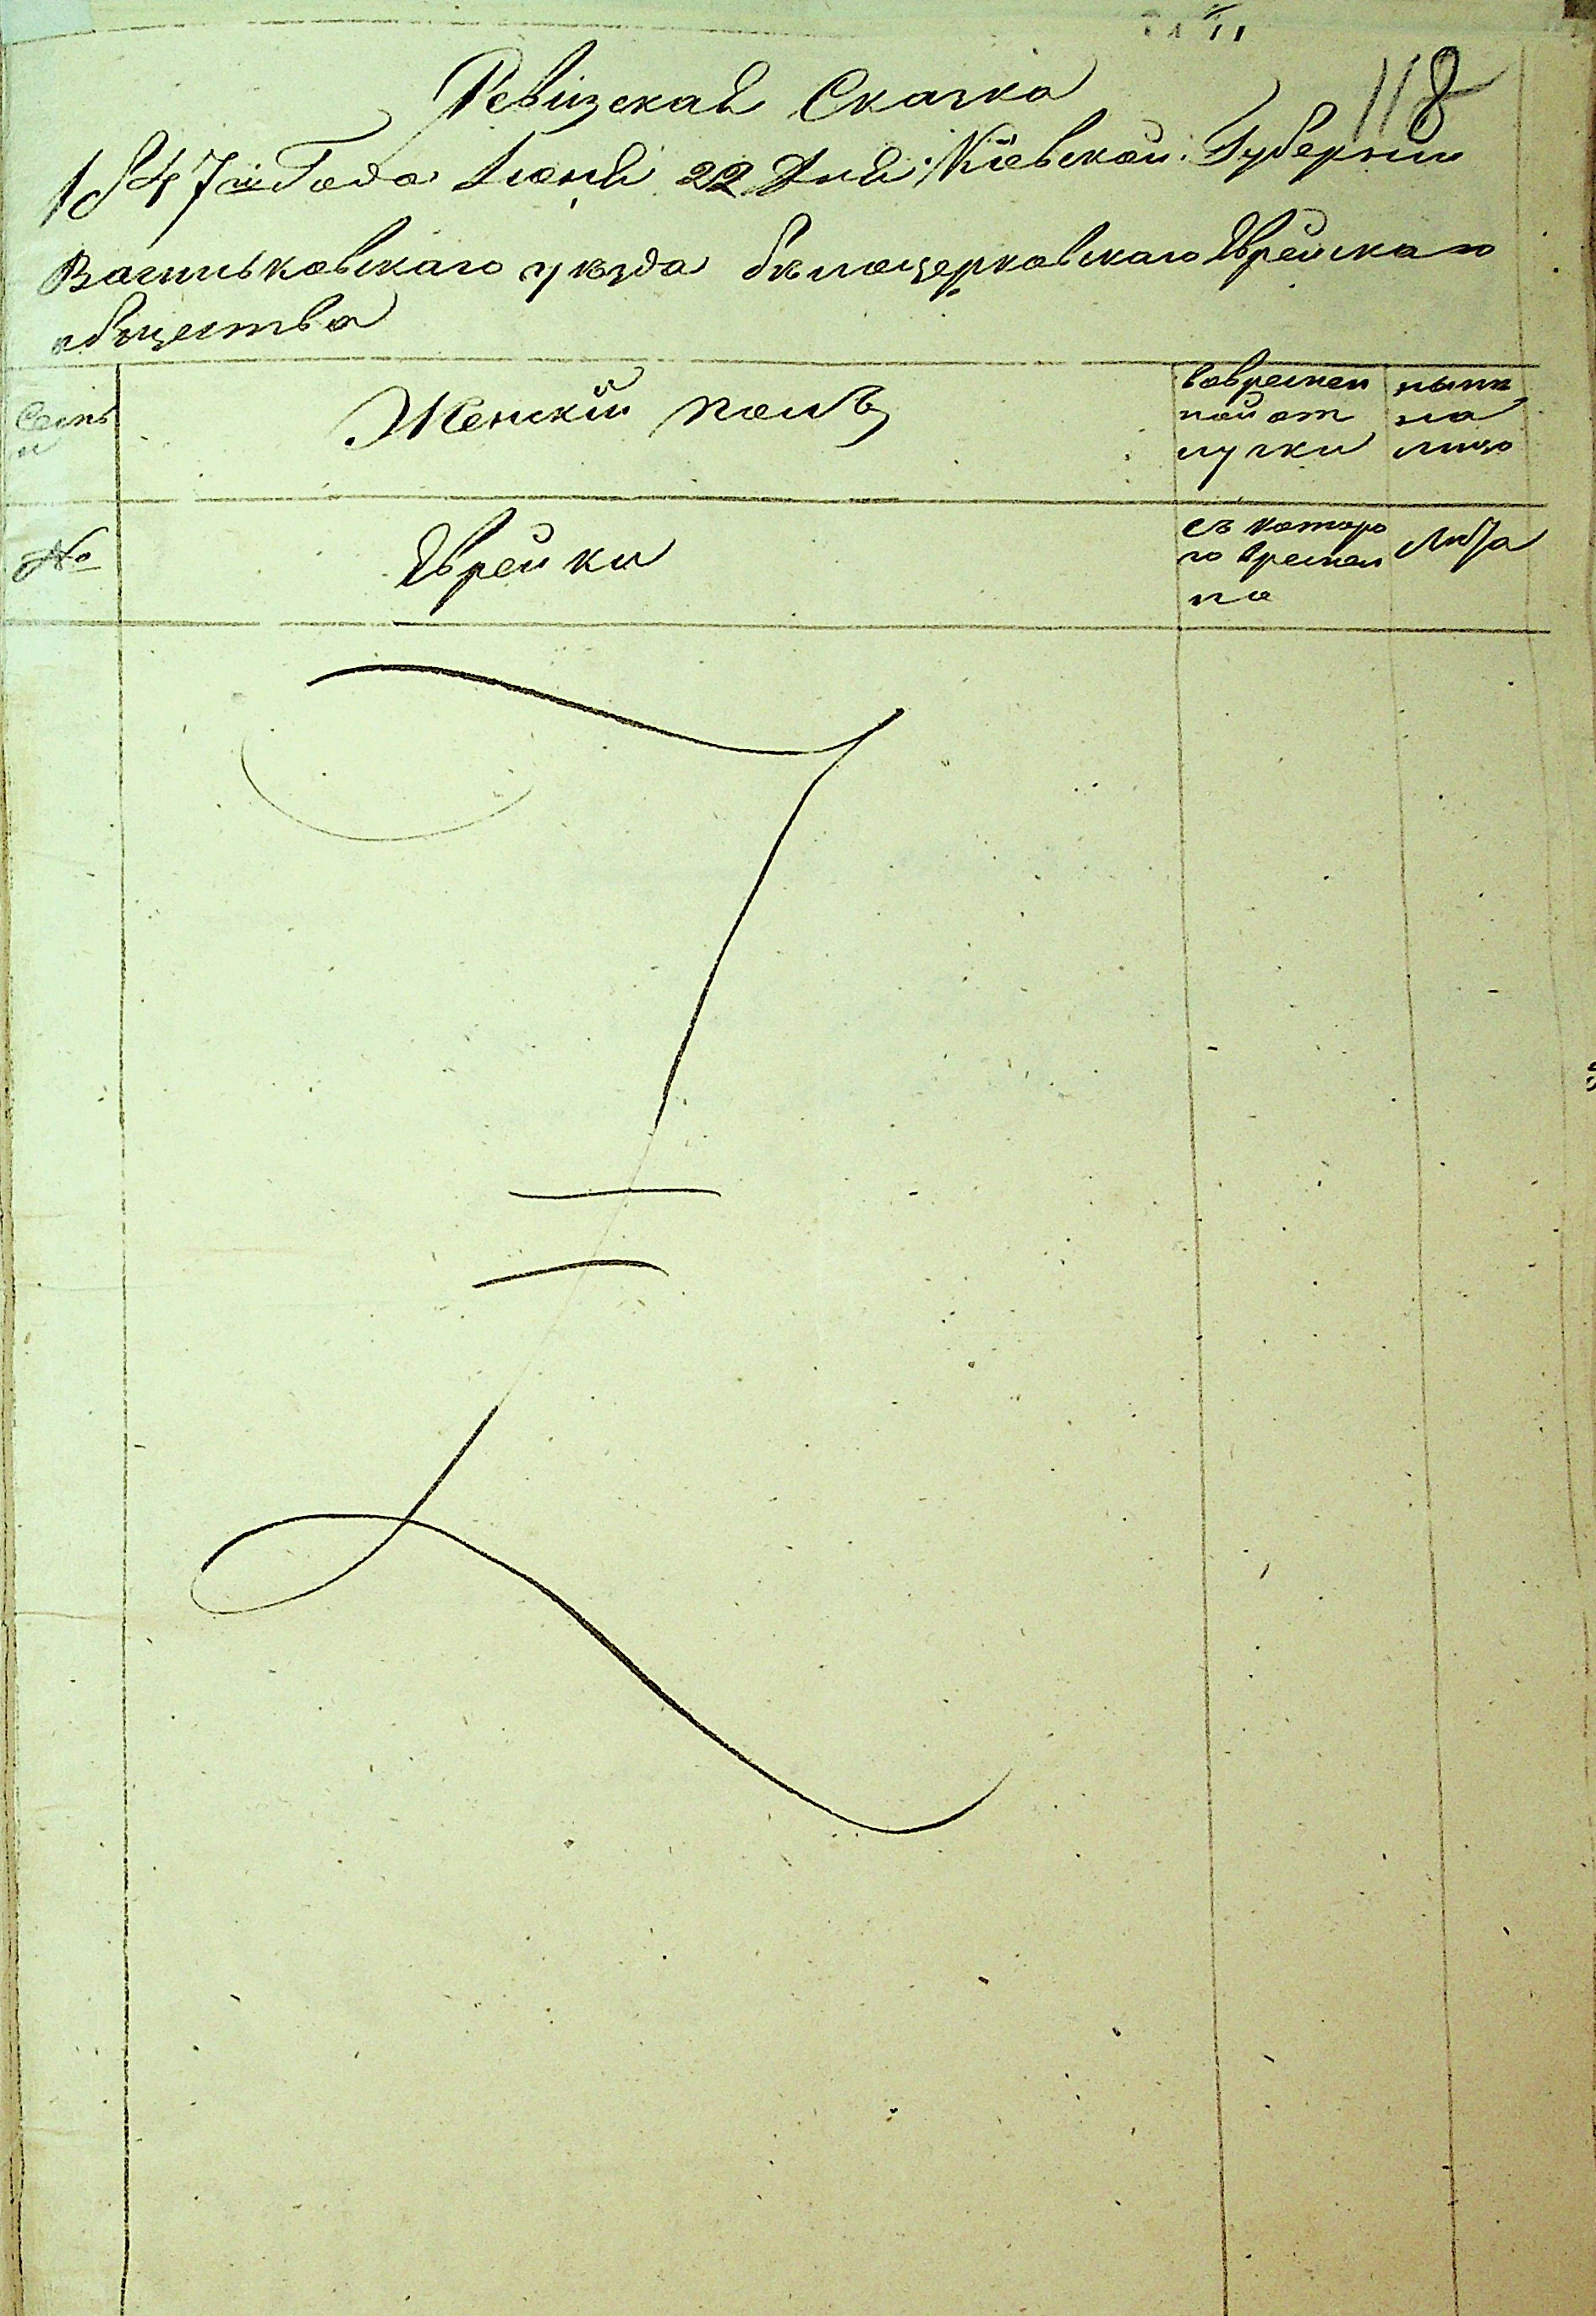 118
Ревизская Сказка
1847го Года Июня 22 Дня Киевской Губернии
Васильковскаго уѣзда бѣлоцерковскаго Еврейскаго
общества
Семьи
Женскій полъ
Вовремен
ной от
лучки
нынѣ
на
лицо
№
Еврейки
съ которо
го времен
но
Лѣта